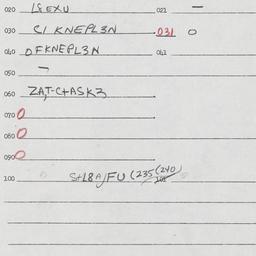 020 IS EXU 021 —
030 C/ KNEPL3N 031 O
040 OFKNEPL3N 041
050 —
060 ZA,T-C+ASK3
070 0
080 0
090 0
100 S+L8A/FU (235 (240)